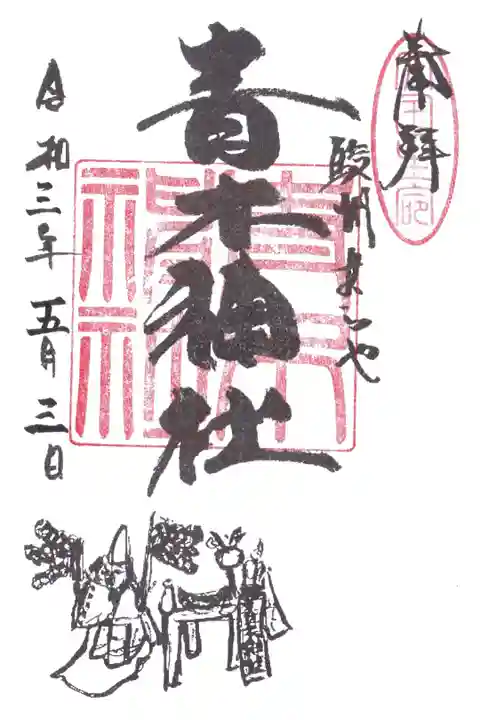 奉拝
駿州
青木神社
令和三年五月三日